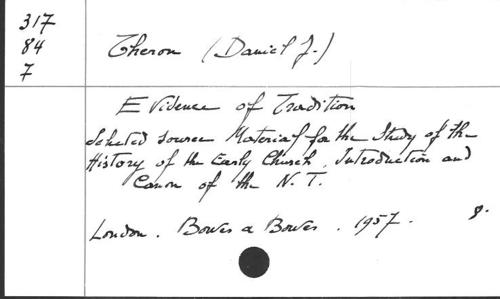 317
84
7
Theron (Daniel J.)
Evidence of Tradition
Selected source Material for the Study of the
History of the Early Church, Introduction and
Canon of the N. T.
London. Bowes a Bowes. 1957. 8.